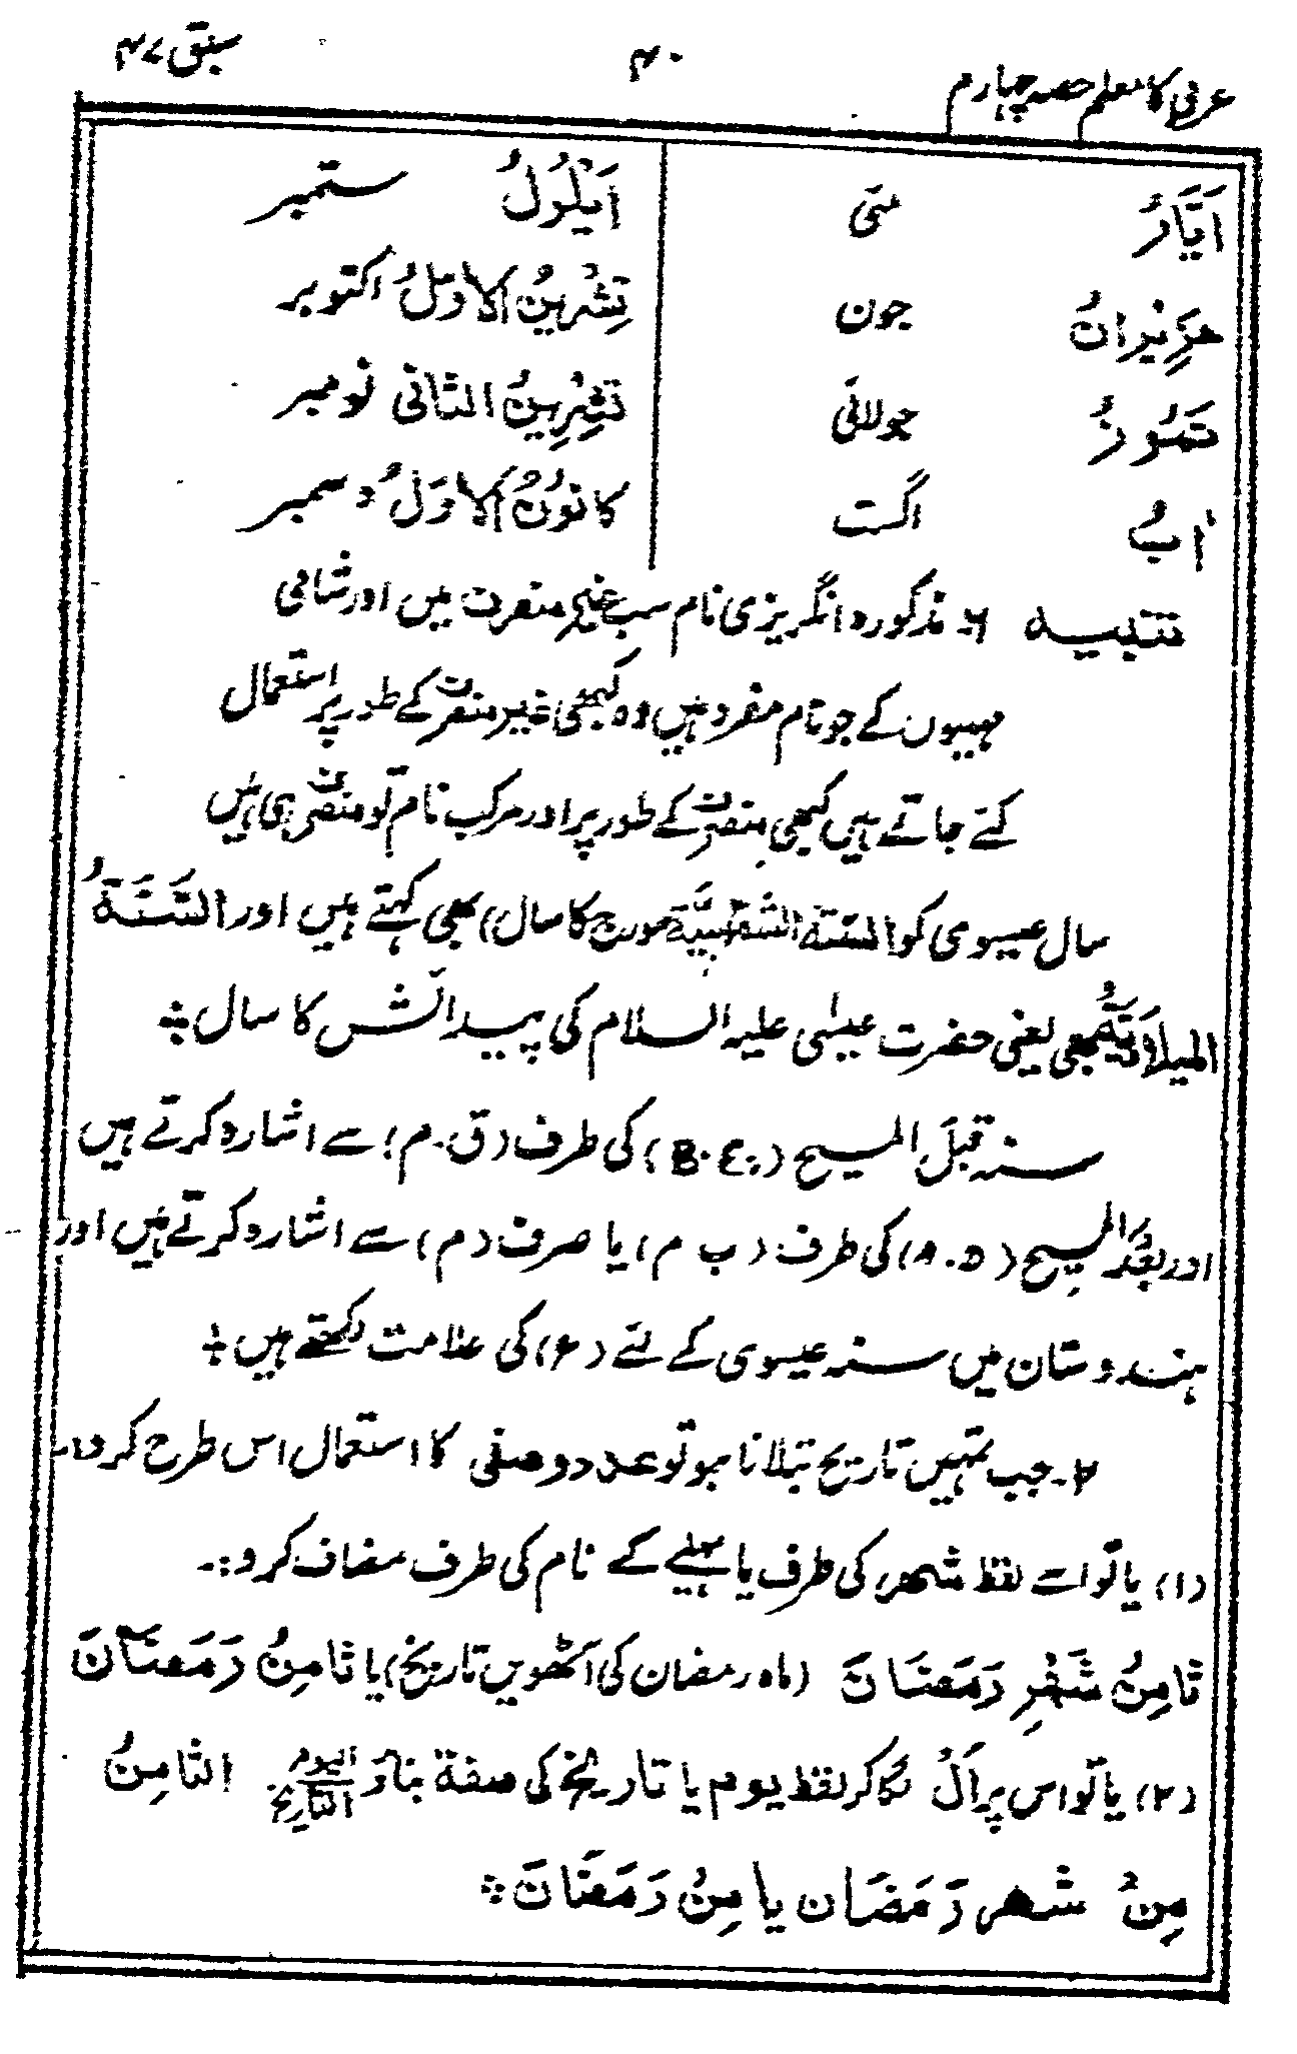 عربی کا معلم حصہ چہارم ۴۰ سبق ۴۷
اَیَّارُ مئی اَیْلُوْلُ ستمبر
حَزِیْرانُ جون تِشْرِیْنُ الْاَوَّلُ اکتوبر
تَمُّوْزُ جولائی تِشْرِیْنُ الثانی نومبر
اٰبُ اگست کانُوْنُ الْاَوَّلُ دسمبر
تنبیہ ۶۔ مذکورہ انگریزی نام سب غیر منصرف ہیں اور شامی
مہینوں کے جو نام مفرد ہیں وہ کبھی غیر منصرف کے طور پر استعمال
کئے جاتے ہیں کبھی منصرف کے طور پر اور مرکب نام تو منصرف ہی ہیں
سال عیسوی کو السَّنَۃُ الشَّمْسِیَّۃُ (سورج کا سال) بھی کہتے ہیں اور السَّنَۃُ
المیلَادِیَّۃُ بھی یعنی حضرت عیسٰی علیہ السلام کی پیدائش کا سال ؞
سنہ قبلَ المسیح (B.C.) کی طرف (ق۔م) سے اشارہ کرتے ہیں
اور بَعْدَ المسیح (A.D) کی طرف (ب م) یا صرف (م) سے اشارہ کرتے ہیں اور
ہندوستان میں سنہ عیسوی کے لئے (ء) کی علامت لکھتے ہیں ؞
۲۔ جب تمہیں تاریخ بتلانا ہو تو عدد وصفی کا استعمال اس طرح کرو:۔
(۱) یا تو اسے لفظ شھر کی طرف یا مہینے کے نام کی طرف مضاف کرو:۔
ثامِنُ شَھْرِ رَمَضَانَ (ماہ رمضان کی آٹھویں تاریخ) یا ثامِنُ رَمَضَانَ
(۲) یا تو اس پر اَلْ لگا کر لفظ یوم یا تاریخ کی صفۃ بناؤ الیوم التاریخ الثامِنُ
مِنْ شھر رَمَضَان یا مِنْ رَمَضَانَ ؞